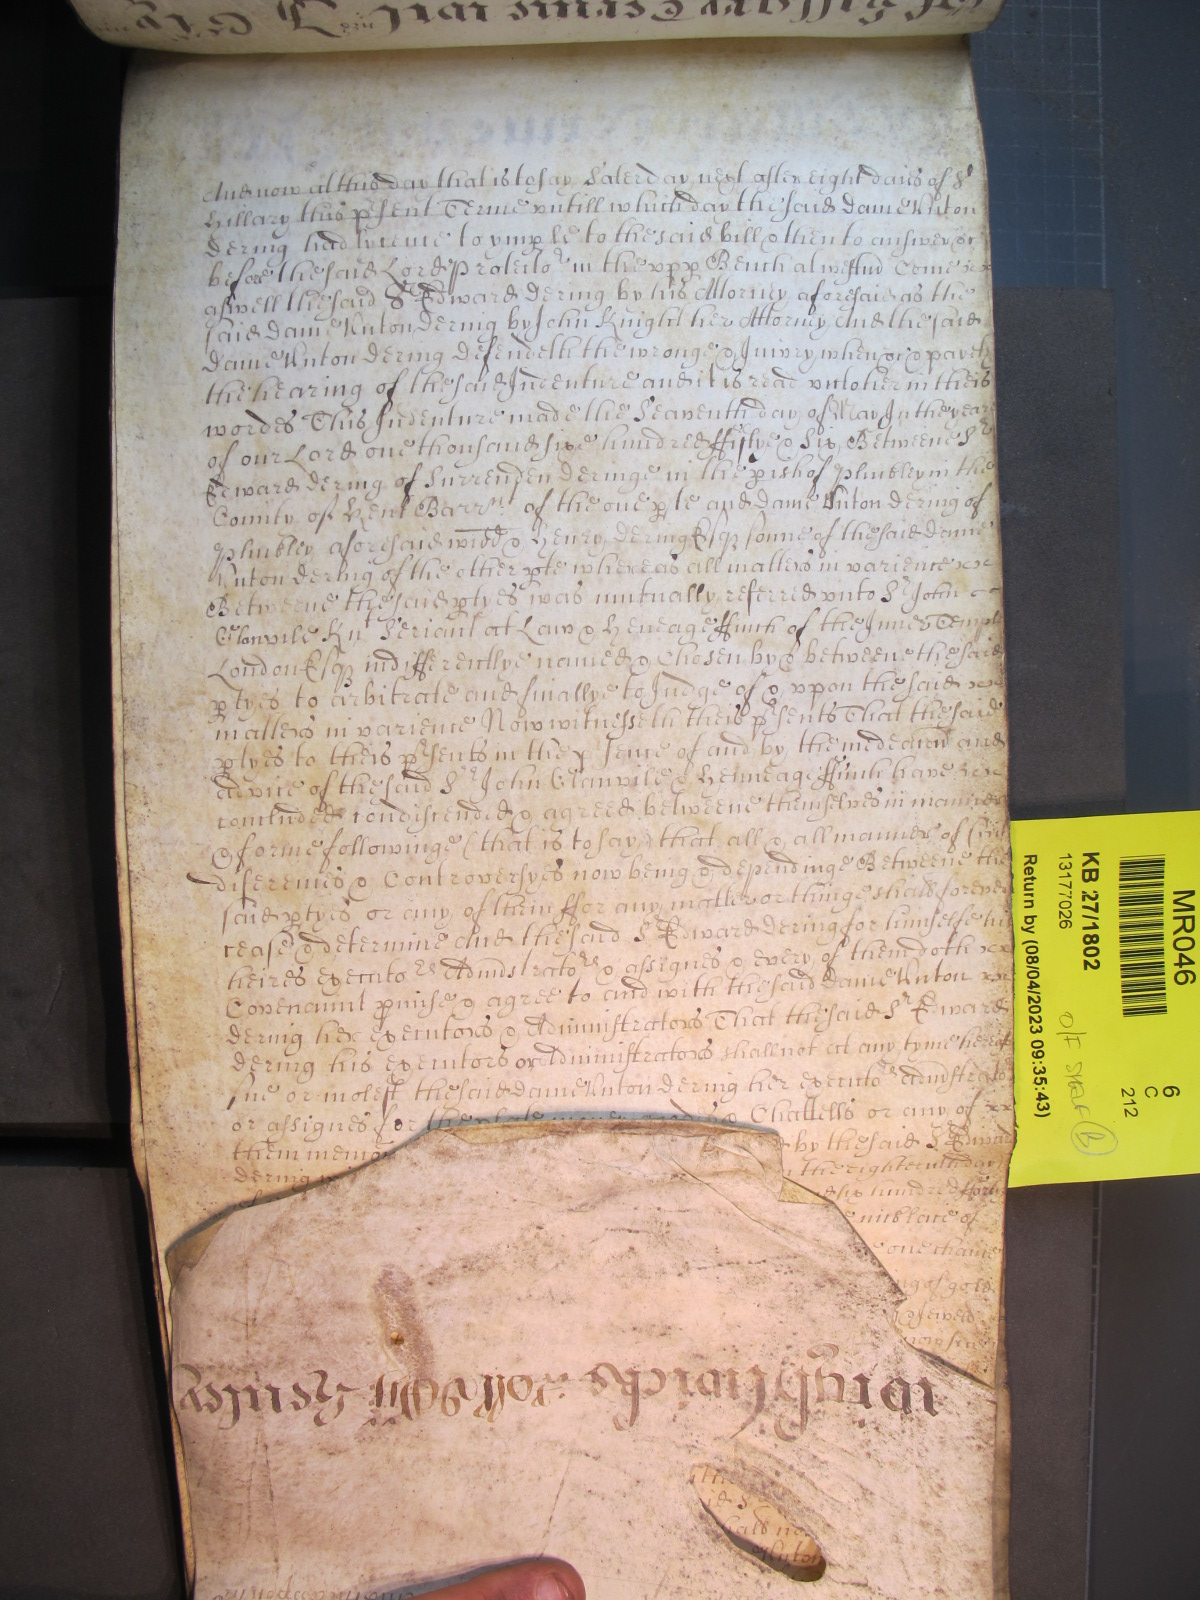 And now at this day that is to say Saterday next after eight daies of St
Hillary this p̱sent Terme untill which day the said dame Unton
dering had lycence to ymp̱le to the said bill & then to answer &c
before the said Lord Protecto^r in the upp̱ Bench at Westm̃ Come xx
aswell the said S^r Edward dering by his Attorney aforesaid as the
said dame Unton dering by John Knight her Attorney And the said
dame Unton dering defendeth the wronge & Iniury when &c & prayeth
the hearing of the said Indenture and it is read unto her in theis
wordes This Indenture made the Seaventh day of May In the yeare
of our Lord one thousand sixe hundred ffiftye & Six Betweene S^r
Edward dering of Surrenden deringe in the p̱ish of Pluckley in the
County of Kent Barr^nt of the one p̱te and dame Unton dering of
Pluckley aforesaid widd & Henry dering Esq sonne of the said dame
Unton dering of the other p̱te whereas all matters in varience xx
Betweene the said p̱tyes was mutually referred unto S^r John
Glanvile Kn^t Seriant at Law & Heneage ffinch of the Inner Temple
London Esq indifferentlye named & Chosen by & betweene the said
p̱tyes to arbitrate and finallye to Judge of & uppon the said xx
matters in varience Now witnesseth theis p̱sents That the said
p̱tyes to theis p̱sents in the p̱sence of and by the mediacion and
advice of the said S^r John Glanvile & Henneage ffinch have xxx
concluded condiscended & agreed betweene themselves in manner
& forme followinge (that is to say) that all & all manner of suits
diferences & Controversyes now being & dependinge Betweene the
said p̱tyes or any of them ffor any matter or thinge shall forever
cease & determine And the said S^r Edward dering for himselfe his
heires executo^rs Adm̃istrato^rs & assignes & every of them doth xx
Covenannt p̱mise & agree to and with the said dame Unton xx
dering her executors & Administrators That the said S^r Edward
dering his executors or Administrators shall not at any tyme hereaf
sue or molest the said dame Unton dering her executo^rs adm̃istrato^rs
or assignes for the plate money goods & Chattells or any of xx
them menc̃o by the said S^r Edward
dering the eighteenth day
six hundred fforty
late of
one chaine
of gold
Jewell
MR046
6
C
212
KB 27/1802
13177026
O/F START (B)
Return by (08/04/2023 09:35:43)
shall no
Unton